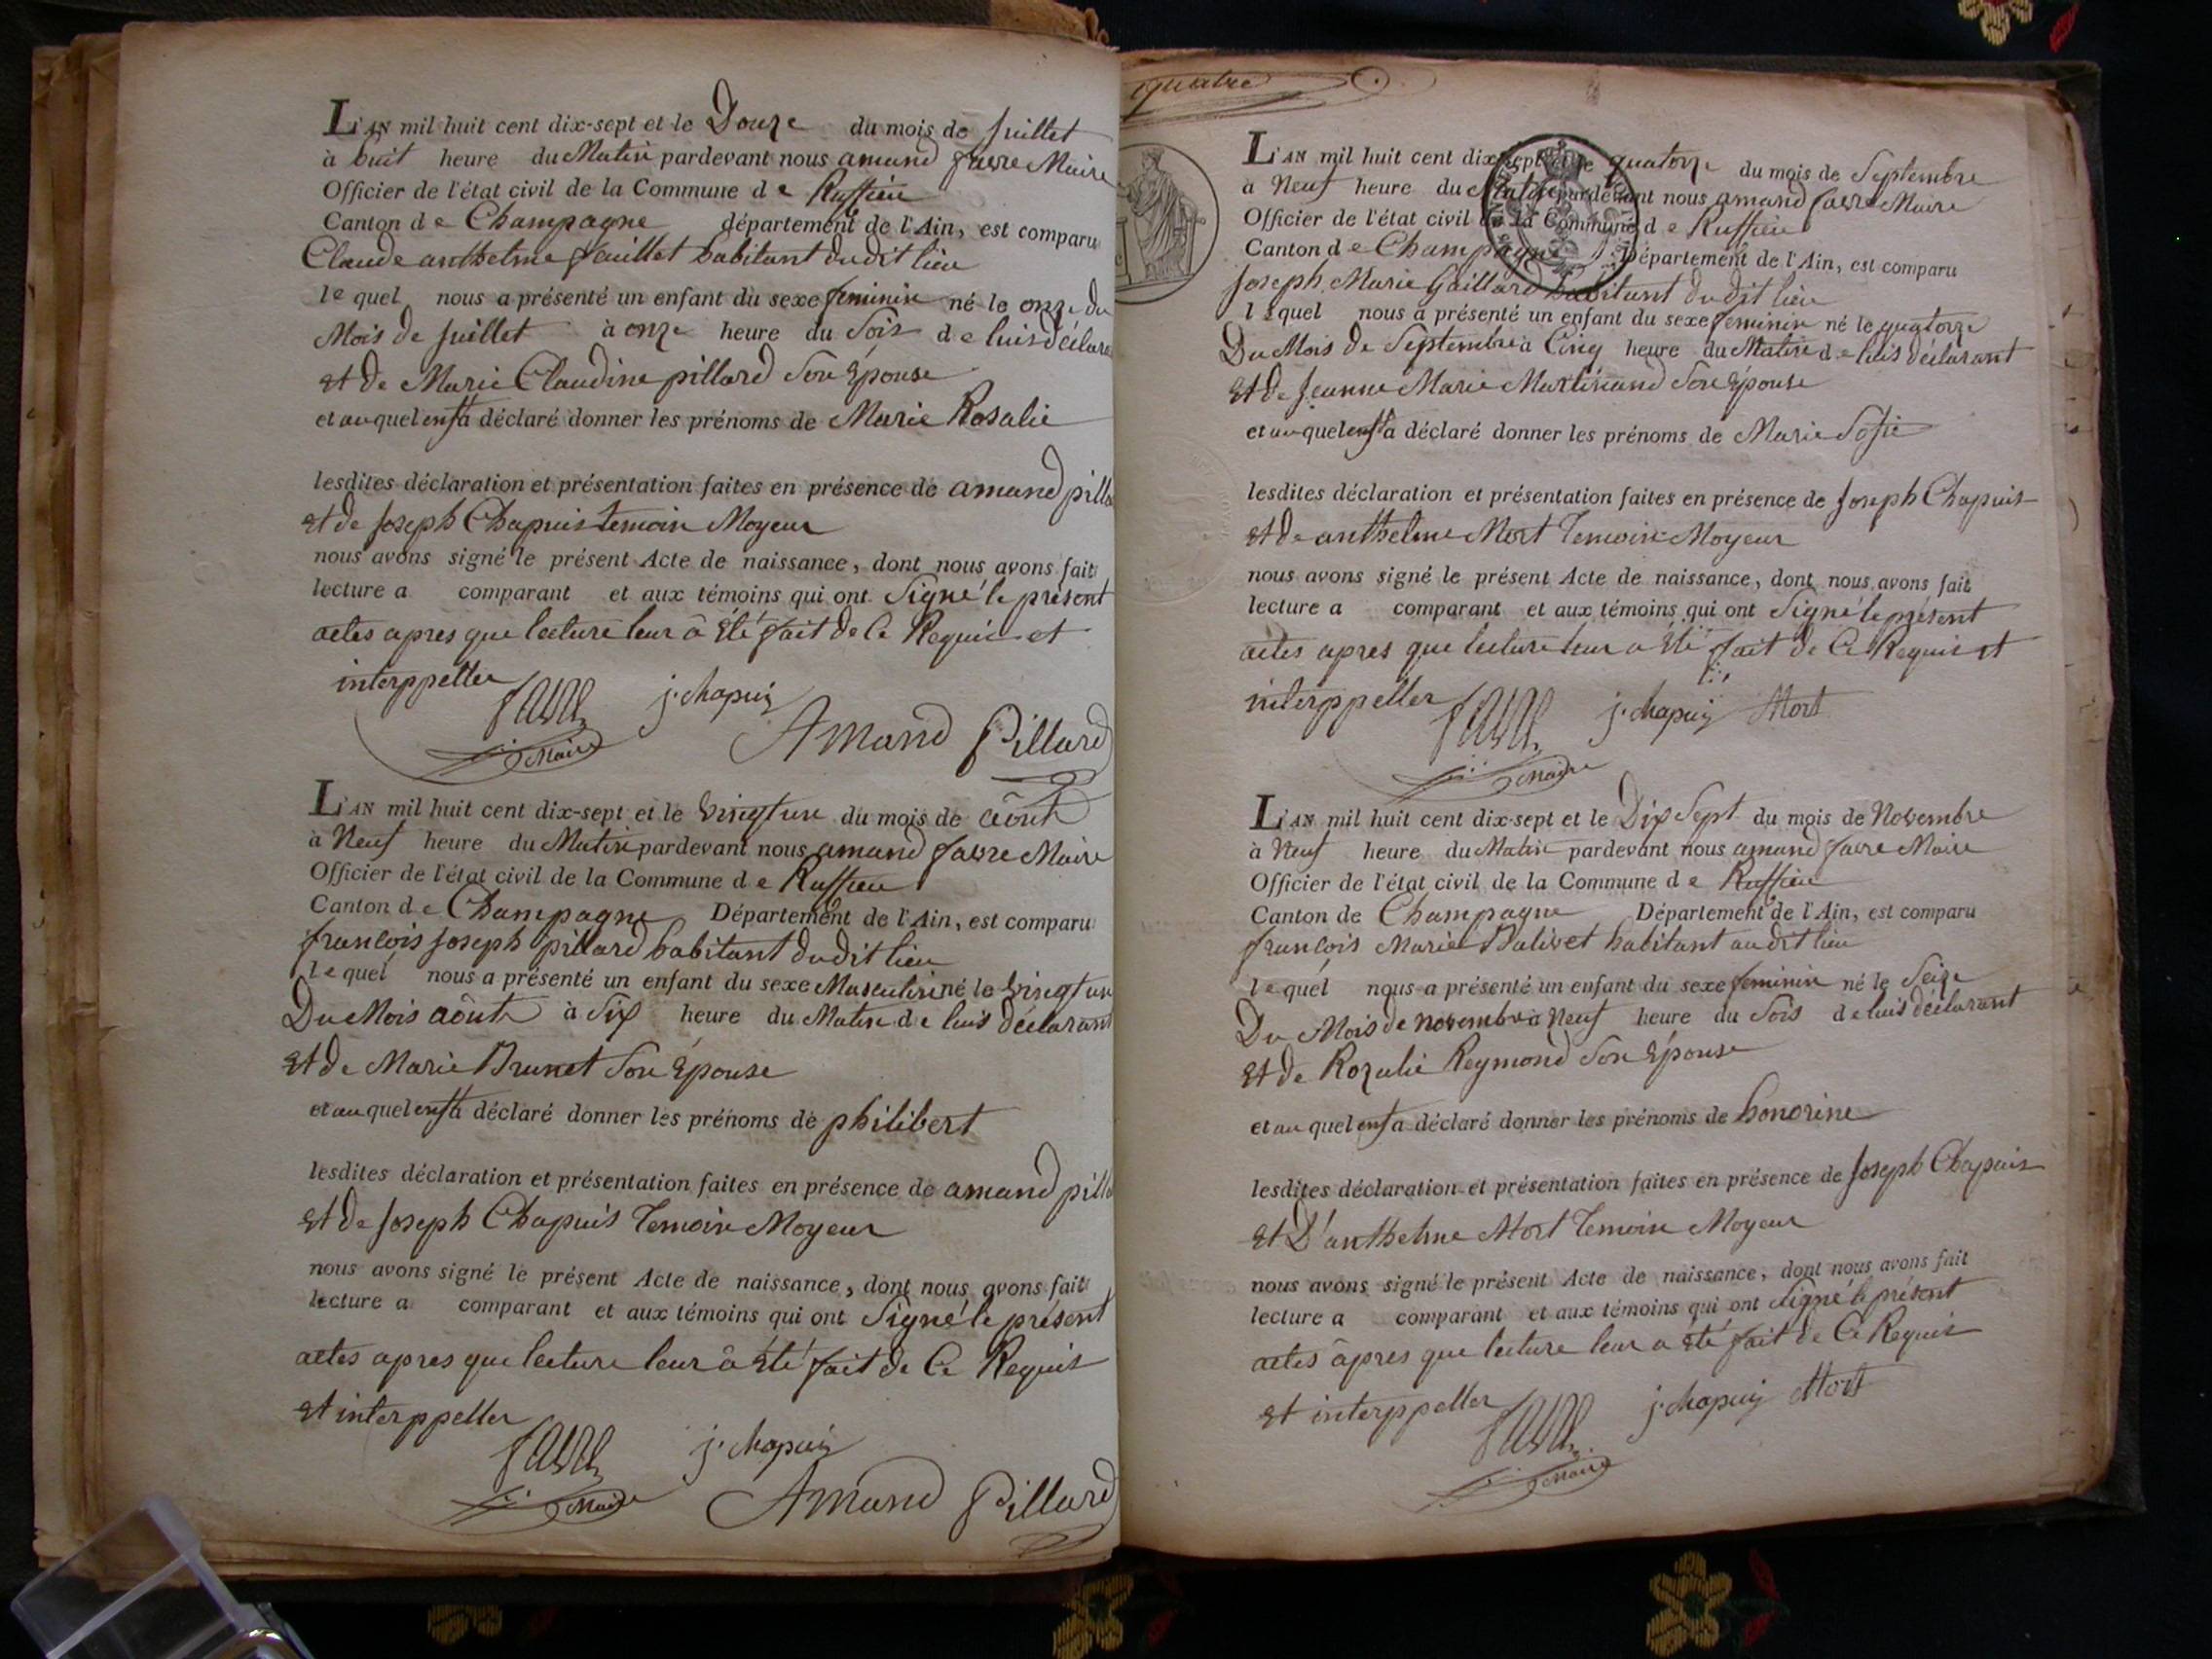 L'AN mil huit cent dix-sept et le Douze du mois de Juillet
à huit heure du Matin pardevant nous amand favre Maire
Officier de l'état civil de la Commune de Ruffieu
Canton de Champagne département de l'Ain, est comparu
Claude anthelme Jauillet habitant dudit lieu
lequel nous a présenté un enfant du sexe feminin né le onze du
Mois de Juillet à onze heure du Soir de luis déclara
et de Marie Claudine pillard Son Épouse
et auquel enft a déclaré donner les prénoms de Marie Rosalie
lesdites déclaration et présentation faites en présence de amand pilla
et de Joseph Chapuis temoin Moyeur
nous avons signé le présent Acte de naissance, dont nous avons fait
lecture a comparant et aux témoins qui ont Signé le présent
actes apres que lecture leur à été fait de Ce Requis et
interppeller
favre j. chapuis
Maire Amand Pillard
L'AN mil huit cent dix-sept et le vingt un du mois de aôut
à Neuf heure du Matin pardevant nous amand favre Maire
Officier de l'état civil de la Commune de Ruffieu
Canton de Champagne Département de l'Ain, est comparu
francois Joseph pillard habitant dudit lieu
lequel nous a présenté un enfant du sexe Masculin né le vingt un
Du Mois aôut à Six heure du Matin de luis déclarant
et de Marie Brunet Son Épouse
et auquel enft a déclaré donner les prénoms de philibert
lesdites déclaration et présentation faites en présence de amand pilla
et de Joseph Chapuis Temoin Moyeur
nous avons signé le présent Acte de naissance, dont nous avons fait
lecture a comparant et aux témoins qui ont Signé le présent
actes apres que lecture leur à été fait de Ce Requis
et interppeller
favre j. chapuis
Maire Amand Pillard
quatre
L'AN mil huit cent dix-sept et le quatorze du mois de Septembre
à Neuf heure du Matin pardevant nous amand favre Maire
Officier de l'état civil de la Commune de Ruffieu
Canton de Champagne Département de l'Ain, est comparu
Joseph Marie Gaillard habitant dudit lieu
lequel nous a présenté un enfant du sexe feminin né le quatorze
Du Mois de Septembre à Cinq heure du Matin de luis déclarant
et de Jeanne Marie Martinand Son Épouse
et auquel enft a déclaré donner les prénoms de Marie Sofie
lesdites déclaration et présentation faites en présence de Joseph Chapuis
et de anthelme Mort Temoin Moyeur
nous avons signé le présent Acte de naissance, dont nous avons fait
lecture a comparant et aux témoins qui ont Signé le présent
actes apres que lecture leur a été fait de Ce Requis et
interppeller
favre j. chapuis Mort
Maire
L'AN mil huit cent dix-sept et le Dix Sept du mois de Novembre
à Neuf heure du Matin pardevant nous amand favre Maire
Officier de l'état civil de la Commune de Ruffieu
Canton de Champagne Département de l'Ain, est comparu
francois Marie Balivet habitant audit lieu
lequel nous a présenté un enfant du sexe feminin né le Seize
Du Mois de novembre à Neuf heure du Soir de luis déclarant
et de Rozalie Reymond Son Épouse
et auquel enft a déclaré donner les prénoms de honorine
lesdites déclaration et présentation faites en présence de Joseph Chapuis
et D'anthelme Mort Temoin Moyeur
nous avons signé le présent Acte de naissance, dont nous avons fait
lecture a comparant et aux témoins qui ont Signé le présent
actes àpres que lecture leur a été fait de Ce Requis
et interppeller
favre j. chapuis Mort
Maire